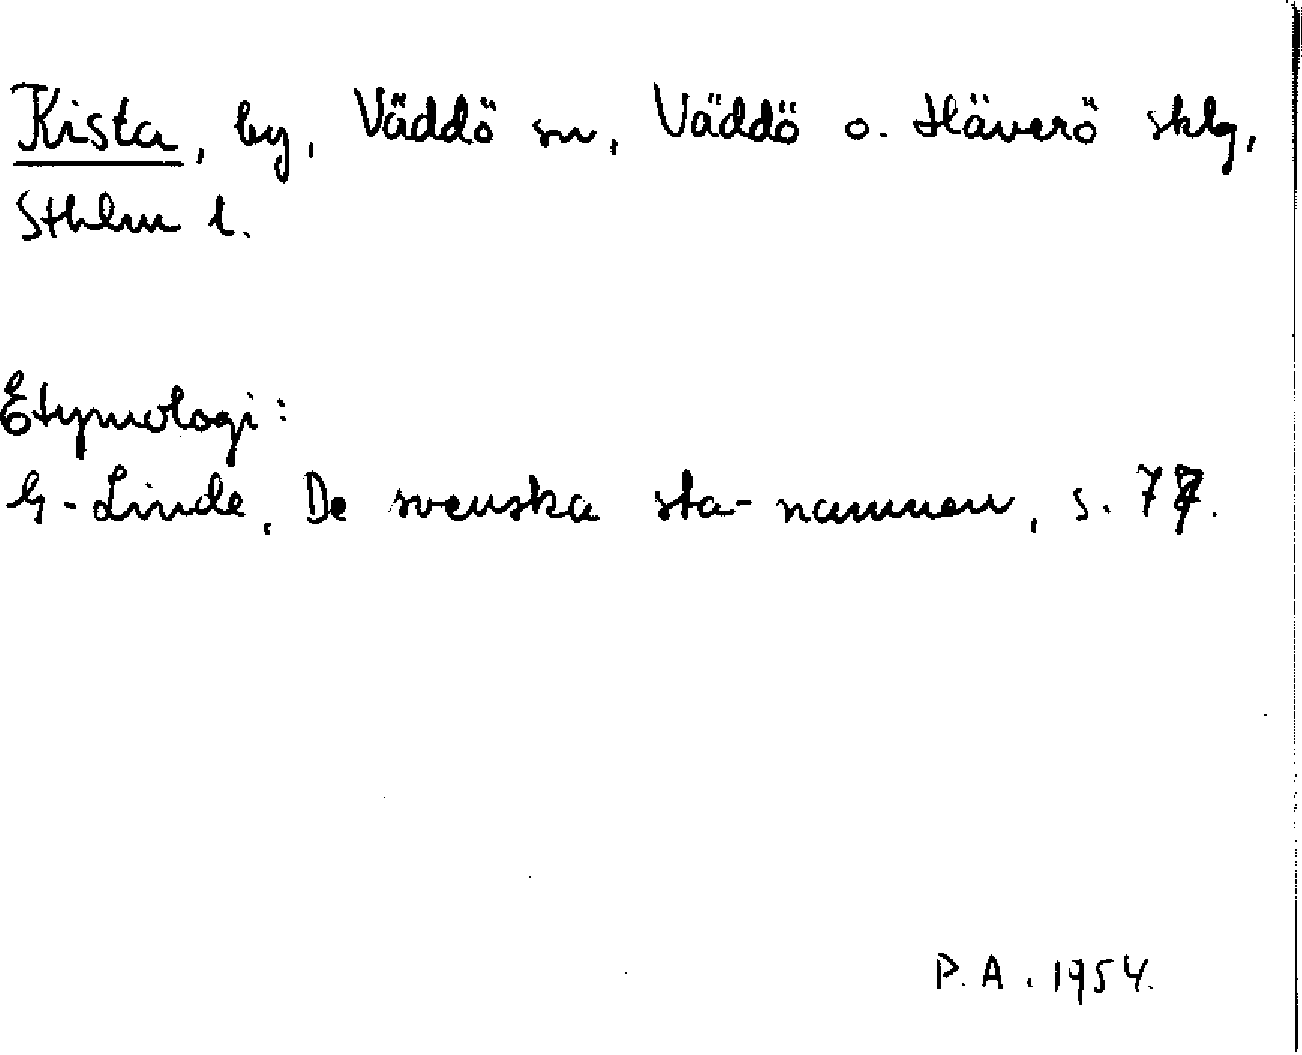 Kista, by, Väddö sn, Väddö o. Häverö sklg,
Sthlm l.
Etymologi:
G. Linde, De svenska sta-namnen, s. 77.
P.A. 1954.